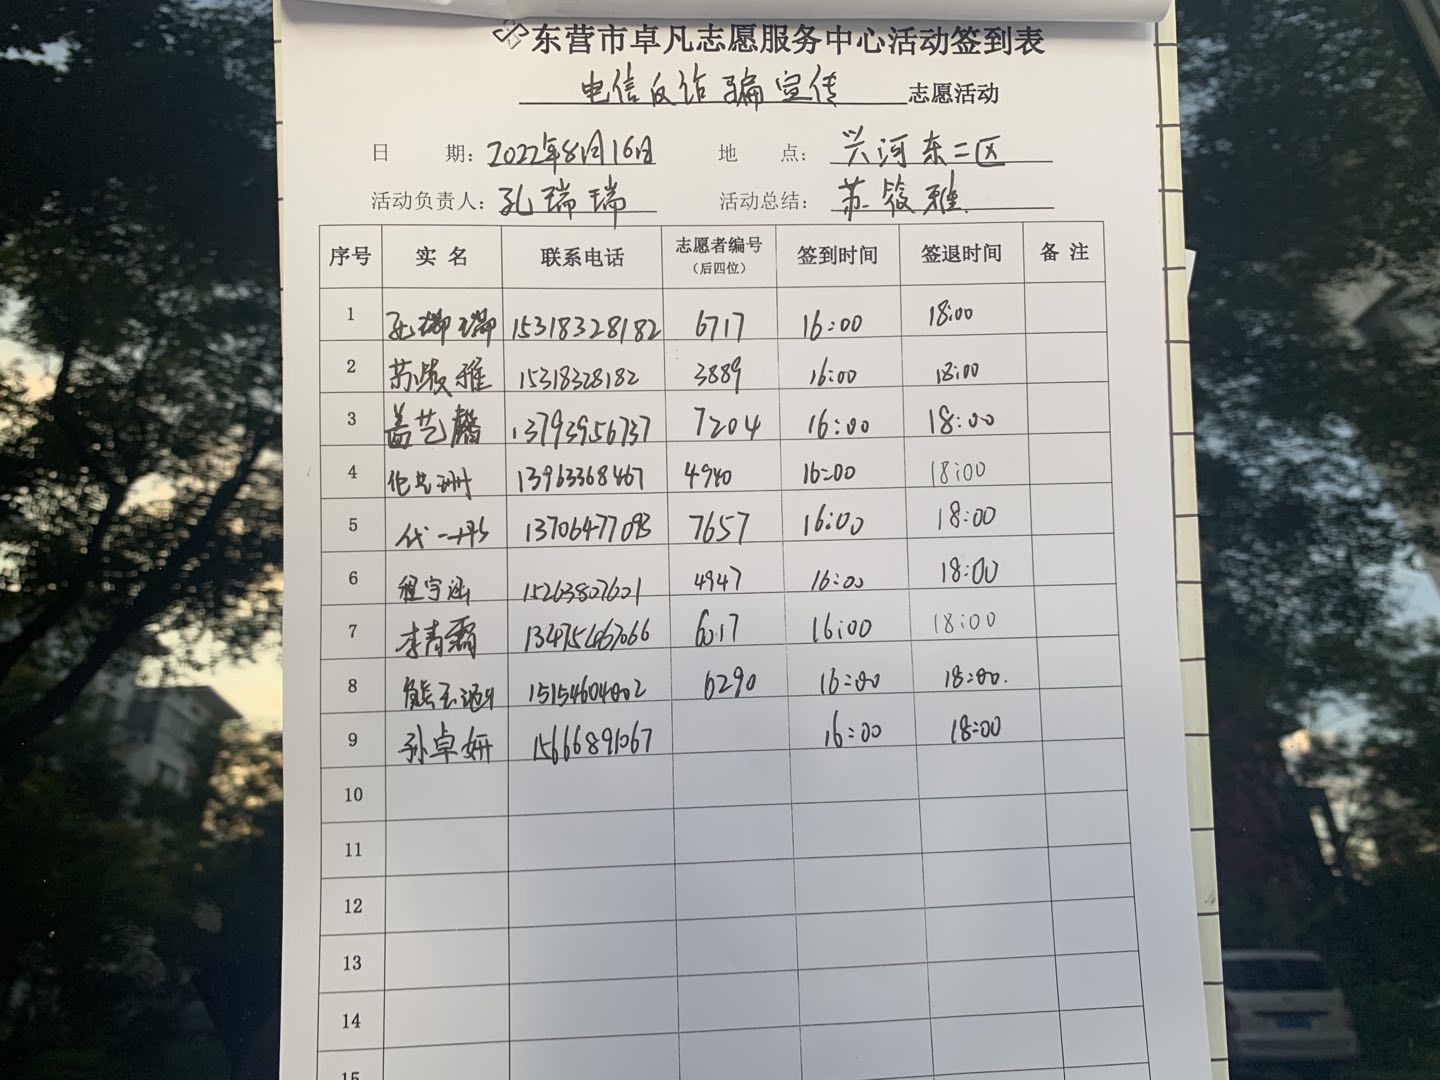 东营市卓凡志愿服务中心活动签到表
电信反诈骗宣传 志愿活动
日 期：2022年8月16日 地 点：兴河东二区
活动负责人：孔瑞瑞 活动总结：苏筱雅
序号 实名 联系电话 志愿者编号（后四位） 签到时间 签退时间 备注
1 孔瑞瑞 15318328182 6717 16:00 18:00
2 苏筱雅 15318328182 3889 16:00 18:00
3 盖艺馨 13793956737 7204 16:00 18:00
4 13963368467 4940 16:00 18:00
5 代一彤 13706477093 7657 16:00 18:00
6 程宇涵 15263807601 4947 16:00 18:00
7 李青霜 6017 16:00 18:00
8 熊玉 15154604002 6290 16:00 18:00.
9 孙卓妍 15666891067 16:00 18:00
10
11
12
13
14
15